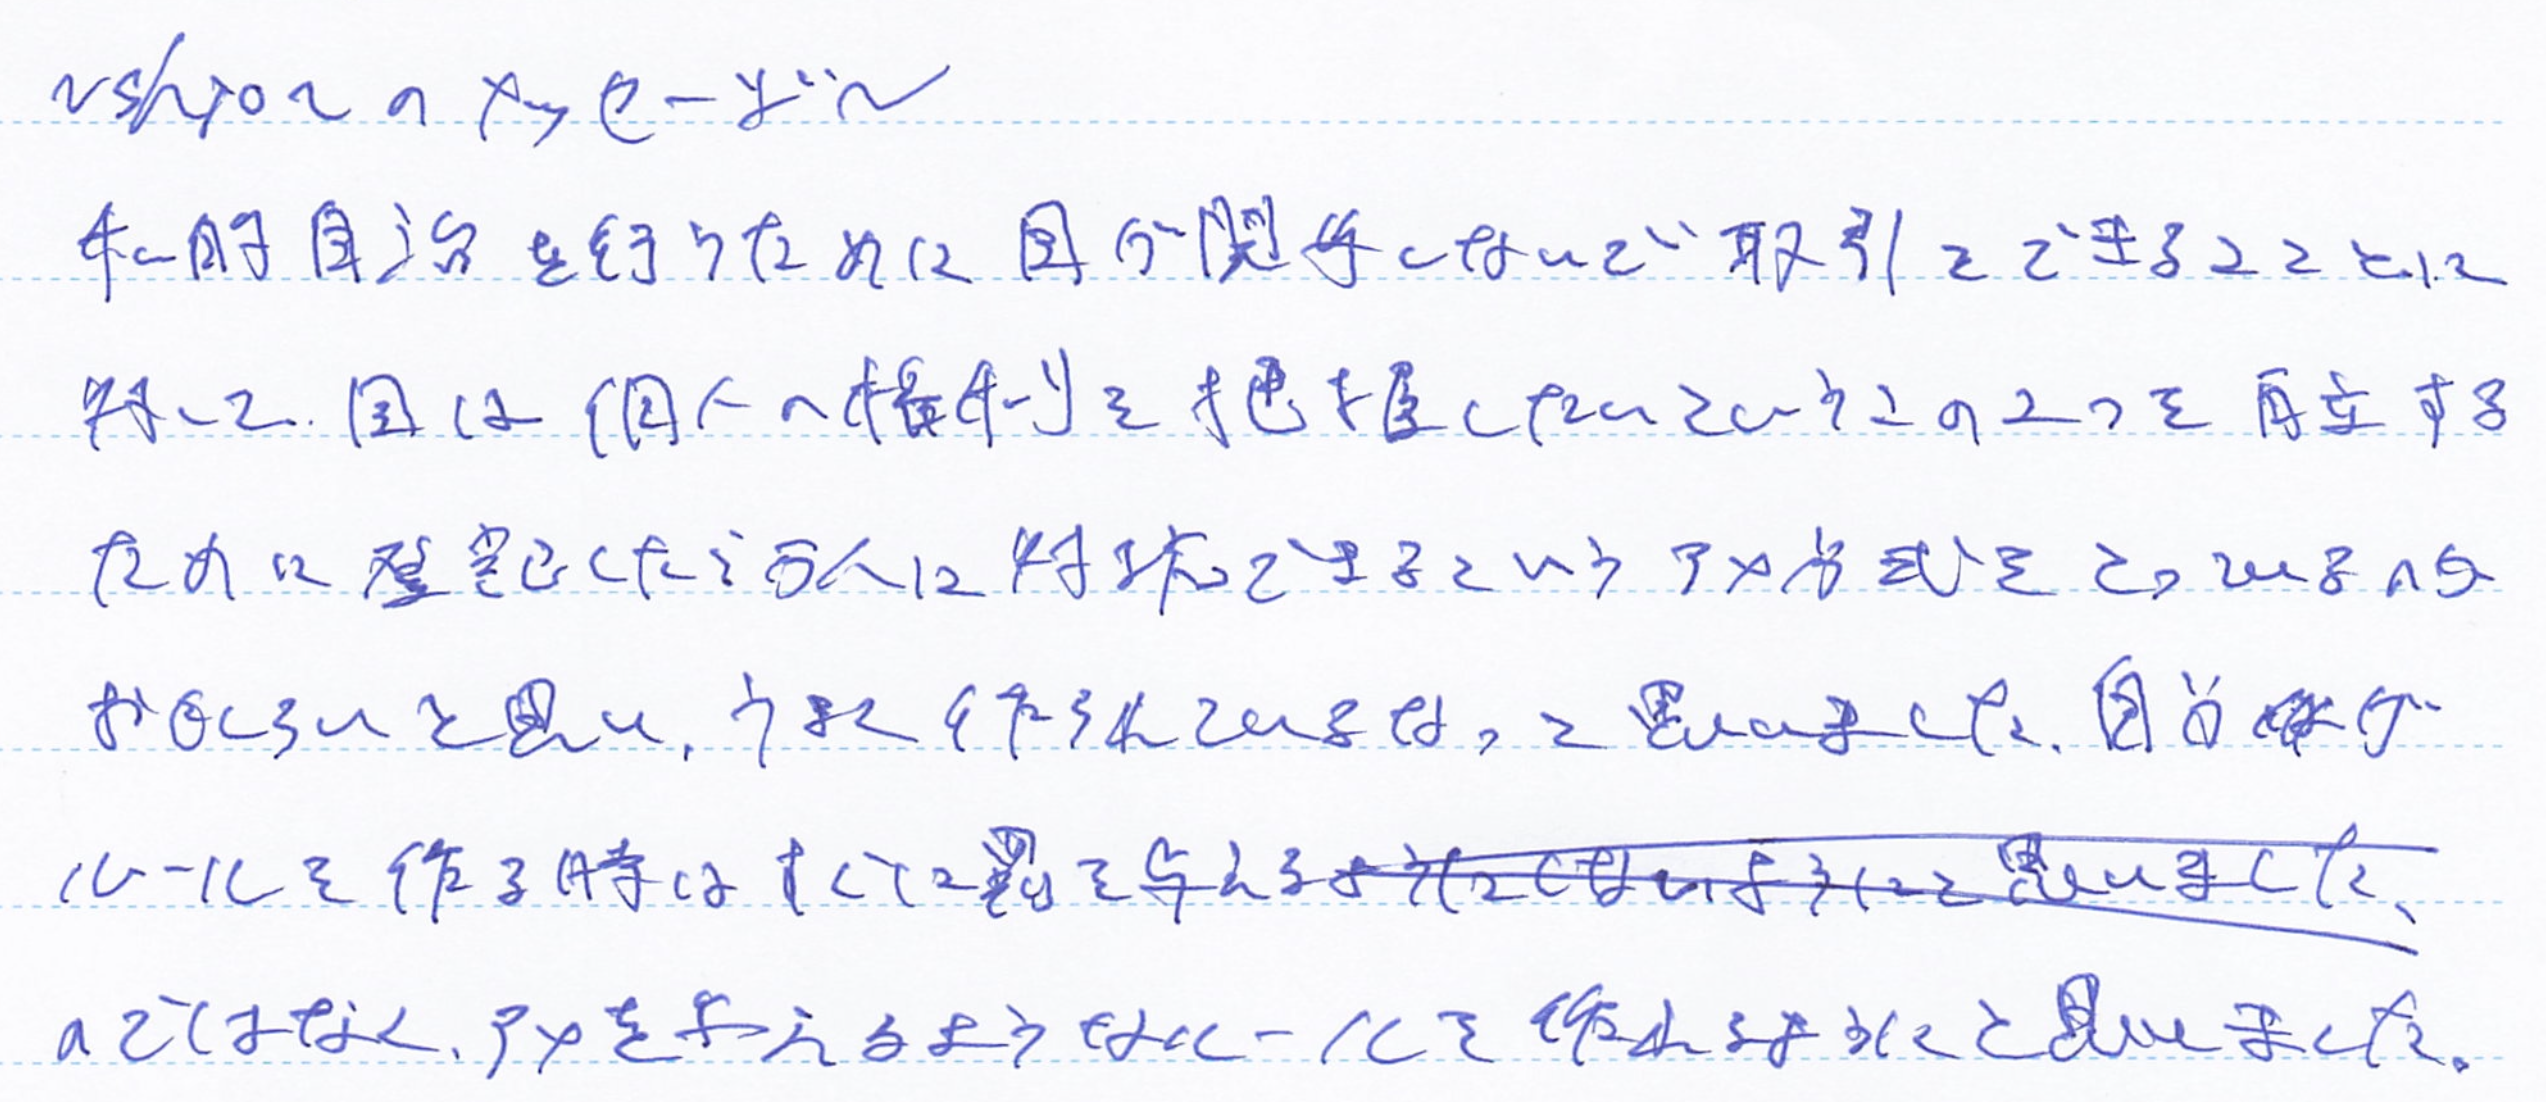 のメッセージ〜
私的自治を行うために国が関与しないで取引をできることに
対して、国は個人の権利を把握したいというこの2つを両立する
ために登記したら万人に対抗できるというアメ方式をとっているのが
おもしろいと思い、うまく作られているなっと思いました。自分がが
ルールを作る時はすぐに罰を与えるようにしないようにと思いました、
のではなく、アメを与えるようなルールを作れるようにと思いました。